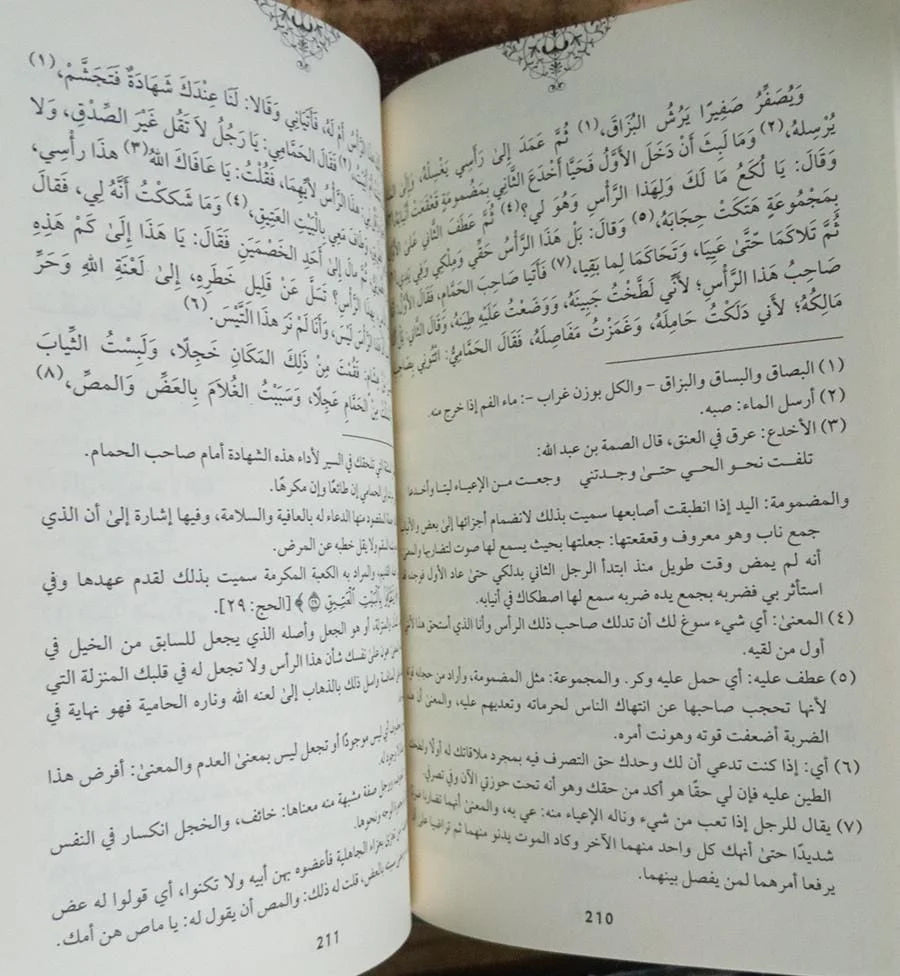 وَيُصَفِّرُ صَفِيرًا يَرُشُّ البُزَاقَ،(١) ثُمَّ عَمَدَ إِلىٰ رَأْسِي يَغْسِلُهُ، وَإِلىٰ
يُرْسِلهُ،(٢) وَمَا لَبِثَ أَنْ دَخَلَ الأَوَّلُ فَحَيَّا أَخْدَعَ الثَّانِي بِمَضْمُومَةٍ قَعْقَعَتْ
وَقَالَ: يَا لُكَعُ مَا لَكَ وَلِهذَا الرَّأْسِ وَهُوَ لي؟(٤) ثُمَّ عَطَفَ الثَّانِي عَلىٰ
بِمَجْمُوعَةٍ هَتَكَتْ حِجَابَهُ،(٥) وَقَالَ: بَلْ هَذَا الرَّأْسُ حَقِّي وَمِلْكِي وَفِي
ثُمَّ تَلاَكَمَا حَتَّىٰ عَيِيَا، وَتَحَاكَمَا لِما بَقِيا،(٧) فَأَتَيَا صَاحِبَ الحَمَّامِ، فَقَالَ
صَاحِبُ هَذَا الرَّأْسِ؛ لأَنِّي لَطَّخْتُ جَبِينَهُ، وَوَضَعْتُ عَلَيْهِ طِينَهُ، وَقَالَ الثَّانِي:
مَالِكُهُ؛ لأَني دَلَكْتُ حَامِلَهُ، وَغَمَزْتُ مَفَاصِلَهُ، فَقَالَ الحَمَّامِيُّ: ائْتُونِي
(١) البصاق والبساق والبزاق - والكل بوزن غراب -: ماء الفم إذا خرج منه.
(٢) أرسل الماء: صبه.
(٣) الأخدع: عرق في العنق، قال الصمة بن عبد الله:
تلفت نحو الحي حتىٰ وجدتني وجعت من الإعياء ليتا وأخدعا
والمضمومة: اليد إذا انطبقت أصابعها سميت بذلك لانضمام أجزائها إلىٰ بعض
جمع ناب وهو معروف وقعقعتها: جعلتها بحيث يسمع لها صوت لتضاربها
أنه لم يمض وقت طويل منذ ابتدأ الرجل الثاني بدلكي حتىٰ عاد الأول
استأثر بي فضربه بجمع يده ضربه سمع لها اصطكاك في أنيابه.
(٤) المعنىٰ: أي شيء سوغ لك أن تدلك صاحب ذلك الرأس وأنا الذي أستحق هذا
أول من لقيه.
(٥) عطف عليه: أي حمل عليه وكر. والمجموعة: مثل المضمومة، وأراد من حجابه
لأنها تحجب صاحبها عن انتهاك الناس لحرماته وتعديهم عليه، والمعنىٰ أن
الضربة أضعفت قوته وهونت أمره.
(٦) أي: إذا كنت تدعي أن لك وحدك حق التصرف فيه بمجرد ملاقاتك له أولًا
الطين عليه فإن لي حقًا هو أكد من حقك وهو أنه تحت حوزتي الآن وفي تصرفي.
(٧) يقال للرجل إذا تعب من شيء وناله الإعياء منه: عي به، والمعنىٰ أنهما تضاربا
شديدًا حتىٰ أنهك كل واحد منهما الآخر وكاد الموت يدنو منهما ثم تراضيا علىٰ أن
يرفعا أمرهما لمن يفصل بينهما.
210
الرَّأْسُ أَمْ لَهُ، فَأَتَيَانِي وَقَالا: لَنَا عِنْدَكَ شَهَادَةٌ فَتَجَشَّمْ،(١)
(٢) فَقَالَ الحَمَّامِي: يَا رَجُلُ لاَ تَقُلْ غَيْرَ الصِّدْقِ، وَلا
هَذَا الرَّأْسُ لأَيِّهِمَا، فَقُلْتُ: يَا عَافَاكَ اللهُ(٣) هذَا رأْسِي،
مَعِي بِالْبَيْتِ العَتِيقِ،(٤) وَمَا شَككْتُ أَنَّهُ لِي، فَقَالَ
ثُمَّ مَالَ إِلىٰ أَحَدِ الخَصْمَيْنِ فَقَالَ: يَا هَذَا إِلىٰ كَمْ هَذِهِ
الرَّأْسِ؟ تَسَلَّ عَنْ قَلِيلِ خَطَرِهِ، إِلىٰ لَعْنَةِ اللهِ وَحَرِّ
الرَّأْسَ لَيْسَ، وَأَنَا لَمْ نَرَ هذَا التَّيْسَ.(٦)
فَقُمْتُ مِنْ ذَلِكَ المَكَانِ خَجِلًا، وَلَبِسْتُ الثِّيابَ
مِنَ الحَمَّامِ عَجِلًا، وَسَبَبْتُ الغُلاَمَ بِالعَضِّ وَالمصِّ،(٨)
في السير لأداء هذه الشهادة أمام صاحب الحمام.
الحمامي إن طائعًا وإن مكرهًا.
منها الدعاء له بالعافية والسلامة، وفيها إشارة إلىٰ أن الذي
ولا يقل خطبه عن المرض.
والمراد به الكعبة المكرمة سميت بذلك لقدم عهدها وفي
بِالْبَيْتِ الْعَتِيقِ ﴾ [الحج: ٢٩].
أو هو الجعل وأصله الذي يجعل للسابق من الخيل في
علىٰ نفسك شأن هذا الرأس ولا تجعل له في قلبك المنزلة التي
واسل ذلك بالذهاب إلىٰ لعنه الله وناره الحامية فهو نهاية في
ليس موجودًا أو تجعل ليس بمعنىٰ العدم والمعنىٰ: أفرض هذا
ورجل صفة مشبهة منه معناها: خائف، والخجل انكسار في النفس
الوجه ونحوها.
بعزاء الجاهلية فأعضوه بهن أبيه ولا تكنوا، أي قولوا له عض
بالعض، قلت له ذلك: والمص أن يقول له: يا ماص هن أمك.
211